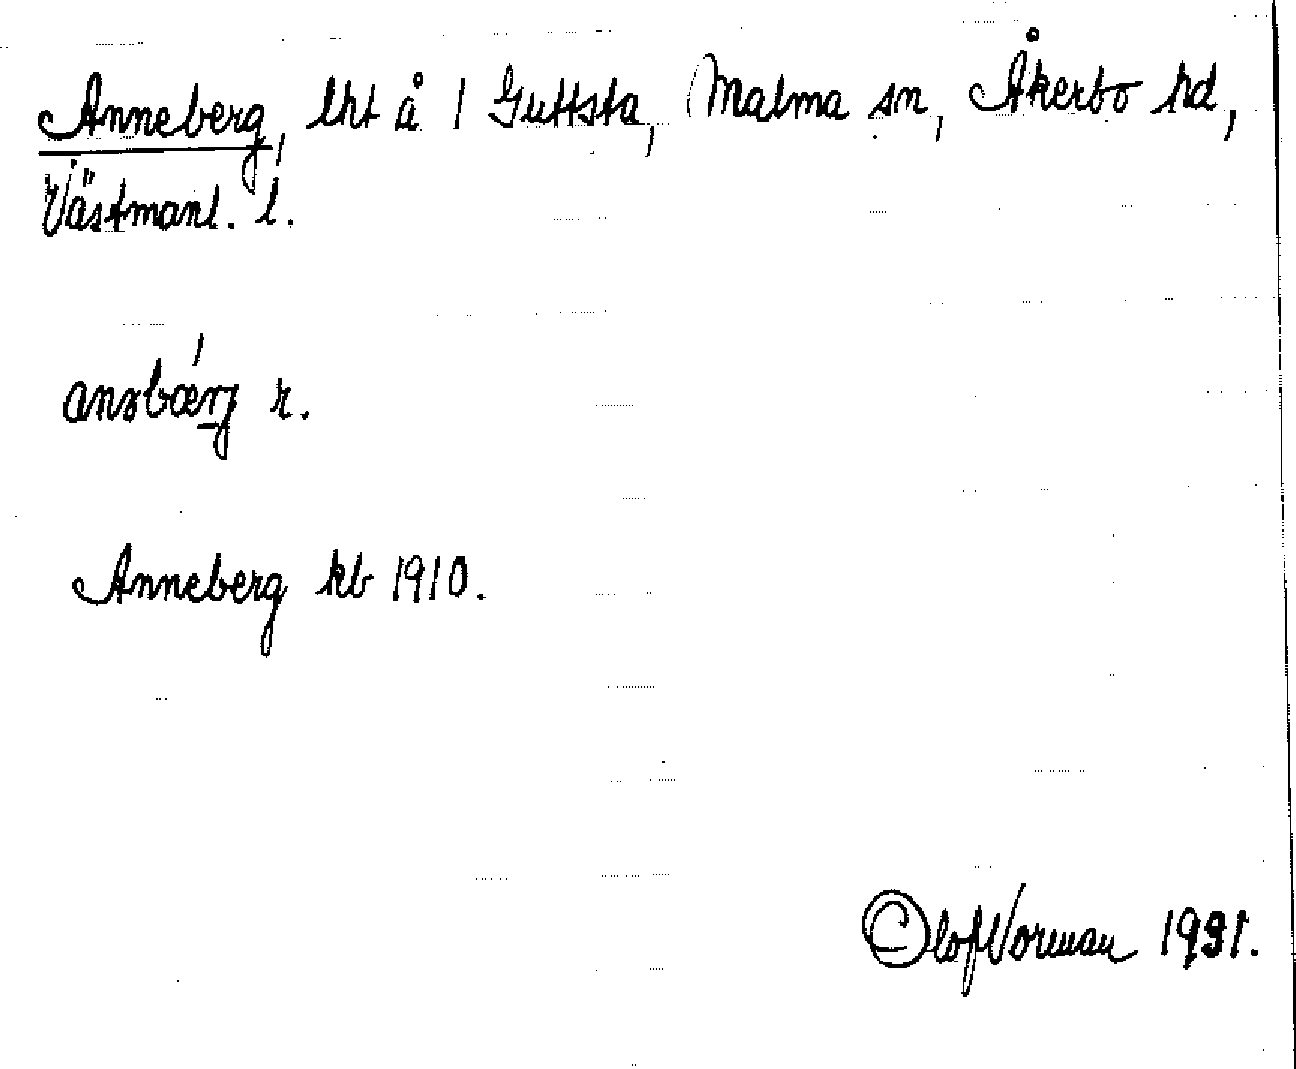 Anneberg, lht å 1 Guttsta, Malma sn, Åkerbo hd,
Västmanl. l.
anəbærj r.
Anneberg kb 1910.
Olof Norman 1931.